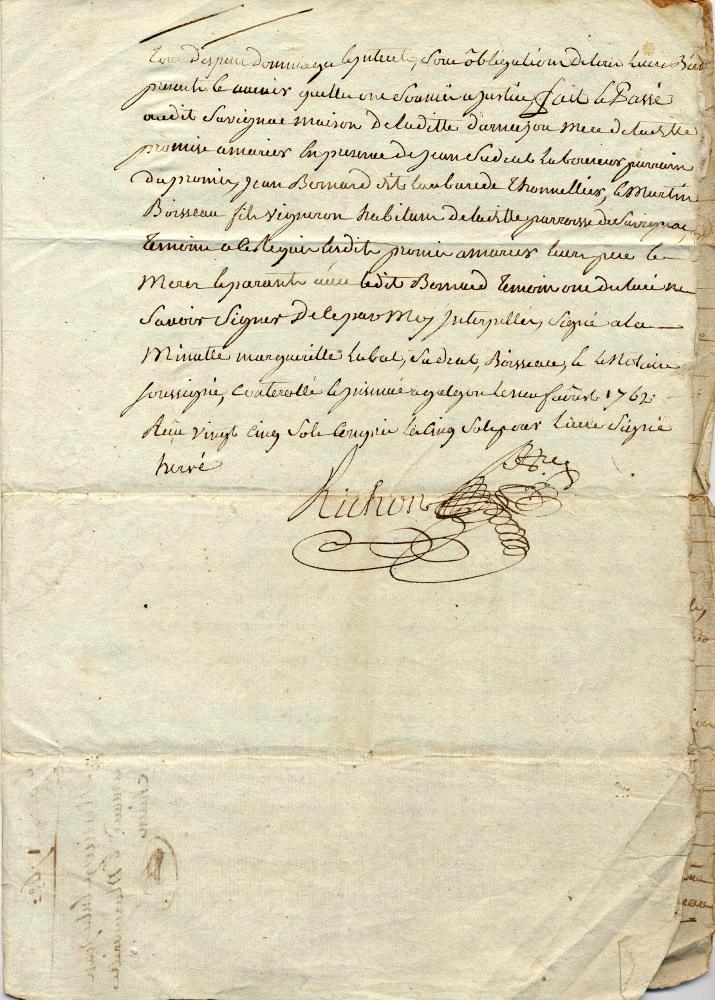 tous depens dommages interets, sous obligation de tous leurs Biens
presents & avenir quelles ont soumis a justice, fait & Passé
audit Savignac maison de laditte darnajou mere de laditte
promise a marier en presence de jean Sudrat Laboureur parrain
du promis, jean Bernard dit Labarede thonnellier, & Martin
Boisseau fils vigneron habitans de laditte parroisse de Savignac,
temoins a ce requis lesdits promis a marier leurs pere &
Meres & parants avec ledit Bernard temoin ont declaré ne
Savoir Signer de ce par Moy Interpellés, Signé a la
Minutte margueritte Labat, Sudrat, Boisseau, & le Notaire
soussigné, Controllé & insinué a galgon le neuf fevrier 1762
Reçu vingt Cinq Sols Compris les Cinq Sols pour Livre Signé
hervé
Richon